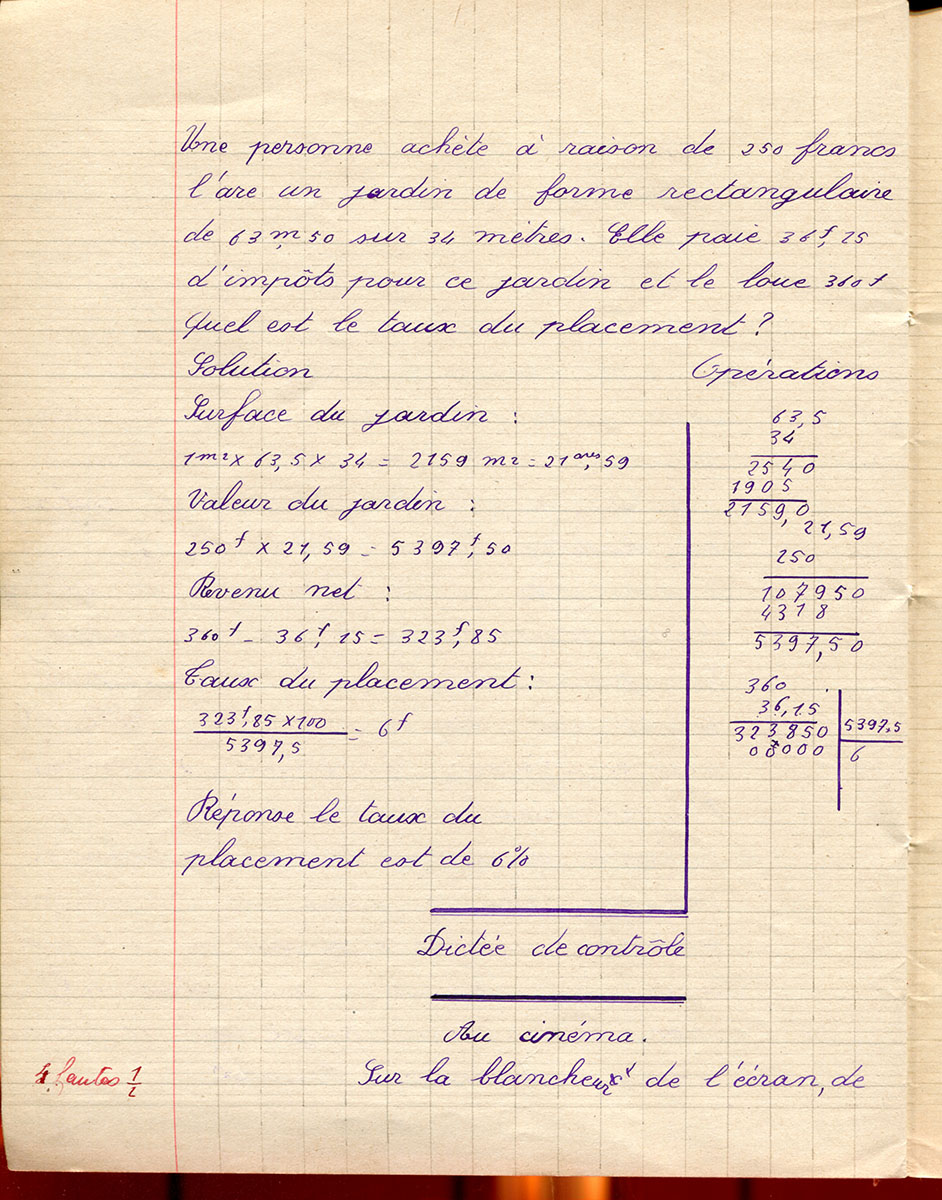 Une personne achète à raison de 250 francs
l'are un jardin de forme rectangulaire
de 63m,50 sur 34 mètres. Elle paie 36f,25
d'impôts pour ce jardin et le loue 360f
Quel est le taux du placement ?
Solution
Surface du jardin :
1m2 x 63,5 x 34 = 2159 m2 = 21ares,59
Valeur du jardin :
250f x 21,59 = 5397f,50
Revenu net :
360f - 36f,15 = 323f,85
Taux du placement :
323f,85 x 100
5397,5
= 6f
Réponse le taux du
placement est de 6%
Opérations
63,5
34
2540
1905
2159,0
21,59
250
107950
4318
5397,50
360
36,15
323850
00000
5397,5
6
Dictée de contrôle
Au cinéma.
4 fautes 1/2
Sur la blancheur de l'écran, de